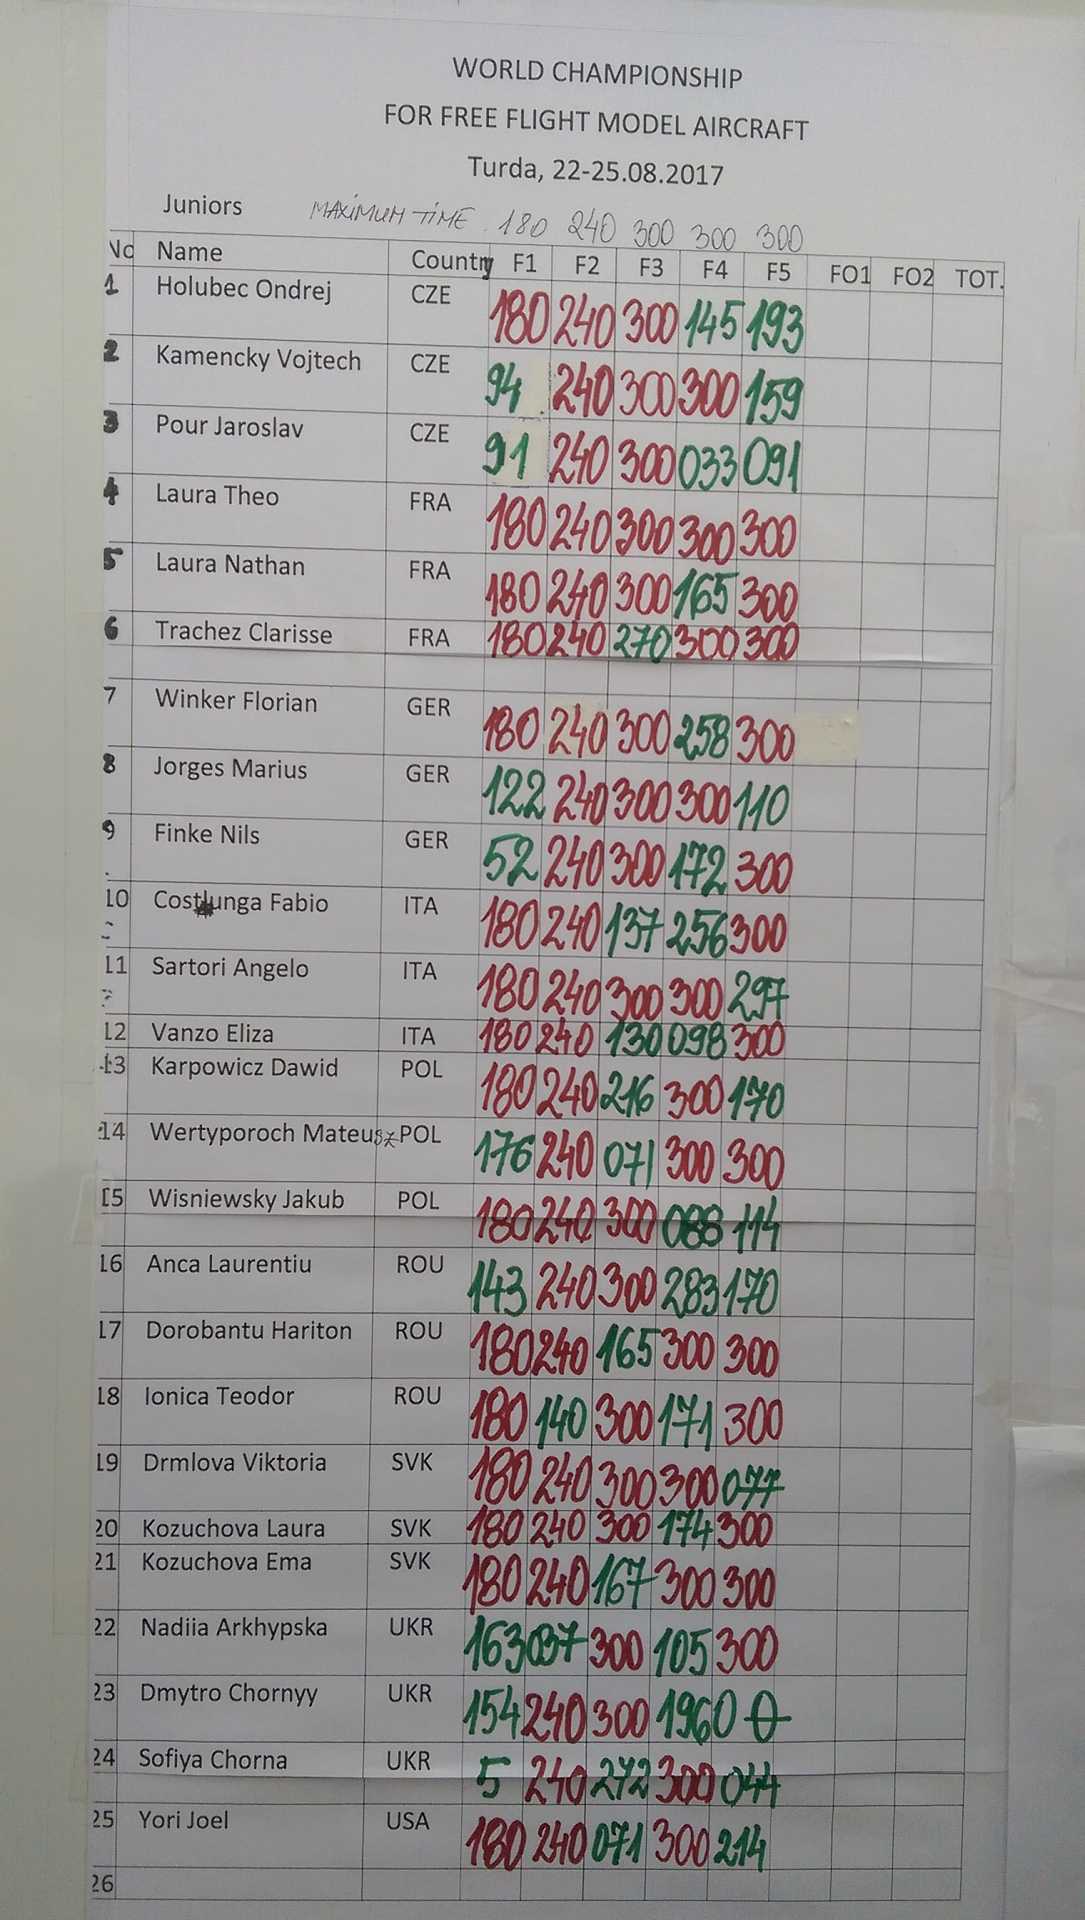 WORLD CHAMPIONSHIP
FOR FREE FLIGHT MODEL AIRCRAFT
Turda, 22-25.08.2017
Juniors MAXIMUM TIME 180 240 300 300 300
No Name Country F1 F2 F3 F4 F5 FO1 FO2 TOT.
1 Holubec Ondrej CZE 180 240 300 145 193
2 Kamencky Vojtech CZE 94 240 300 300 159
3 Pour Jaroslav CZE 91 240 300 033 091
4 Laura Theo FRA 180 240 300 300 300
5 Laura Nathan FRA 180 240 300 165 300
6 Trachez Clarisse FRA 180 240 270 300 300
7 Winker Florian GER 180 240 300 258 300
8 Jorges Marius GER 122 240 300 300 110
9 Finke Nils GER 52 240 300 172 300
10 Costlunga Fabio ITA 180 240 137 256 300
11 Sartori Angelo ITA 180 240 300 300 297
12 Vanzo Eliza ITA 180 240 130 098 300
13 Karpowicz Dawid POL 180 240 216 300 170
14 Wertyporoch Mateusz POL 176 240 071 300 300
15 Wisniewsky Jakub POL 180 240 300 088 114
16 Anca Laurentiu ROU 143 240 300 283 170
17 Dorobantu Hariton ROU 180 240 165 300 300
18 Ionica Teodor ROU 180 140 300 171 300
19 Drmlova Viktoria SVK 180 240 300 300 077
20 Kozuchova Laura SVK 180 240 300 174 300
21 Kozuchova Ema SVK 180 240 167 300 300
22 Nadiia Arkhypska UKR 163 037 300 105 300
23 Dmytro Chornyy UKR 154 240 300 196 0 0
24 Sofiya Chorna UKR 5 240 272 300 044
25 Yori Joel USA 180 240 071 300 214
26